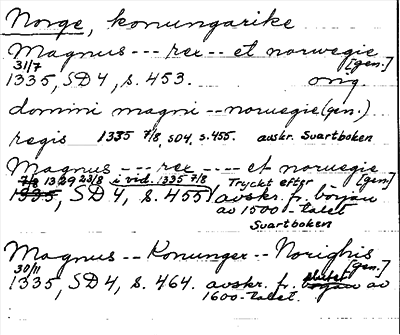 Norge, konungarike
Magnus --- rex -- et norwegie
31/7 [gen.]
1335, SD 4, s. 453. orig.
domini magni -- noruegie (gen.)
regis 1335 7/8, SD4, s. 455. avskr. Svartboken
Magnus --- rex ---- et noruegie
7/8 13/29 23/8 i vid. 1335 7/8 Tryckt efter [gen]
1335, SD 4, s. 455 avskr. fr. början
av 1500-talet
Svartboken
Magnus -- Konunger -- Norighis
30/11 slutet [gen.]
1335, SD 4, s. 464. avskr. fr. början av
1600-talet.